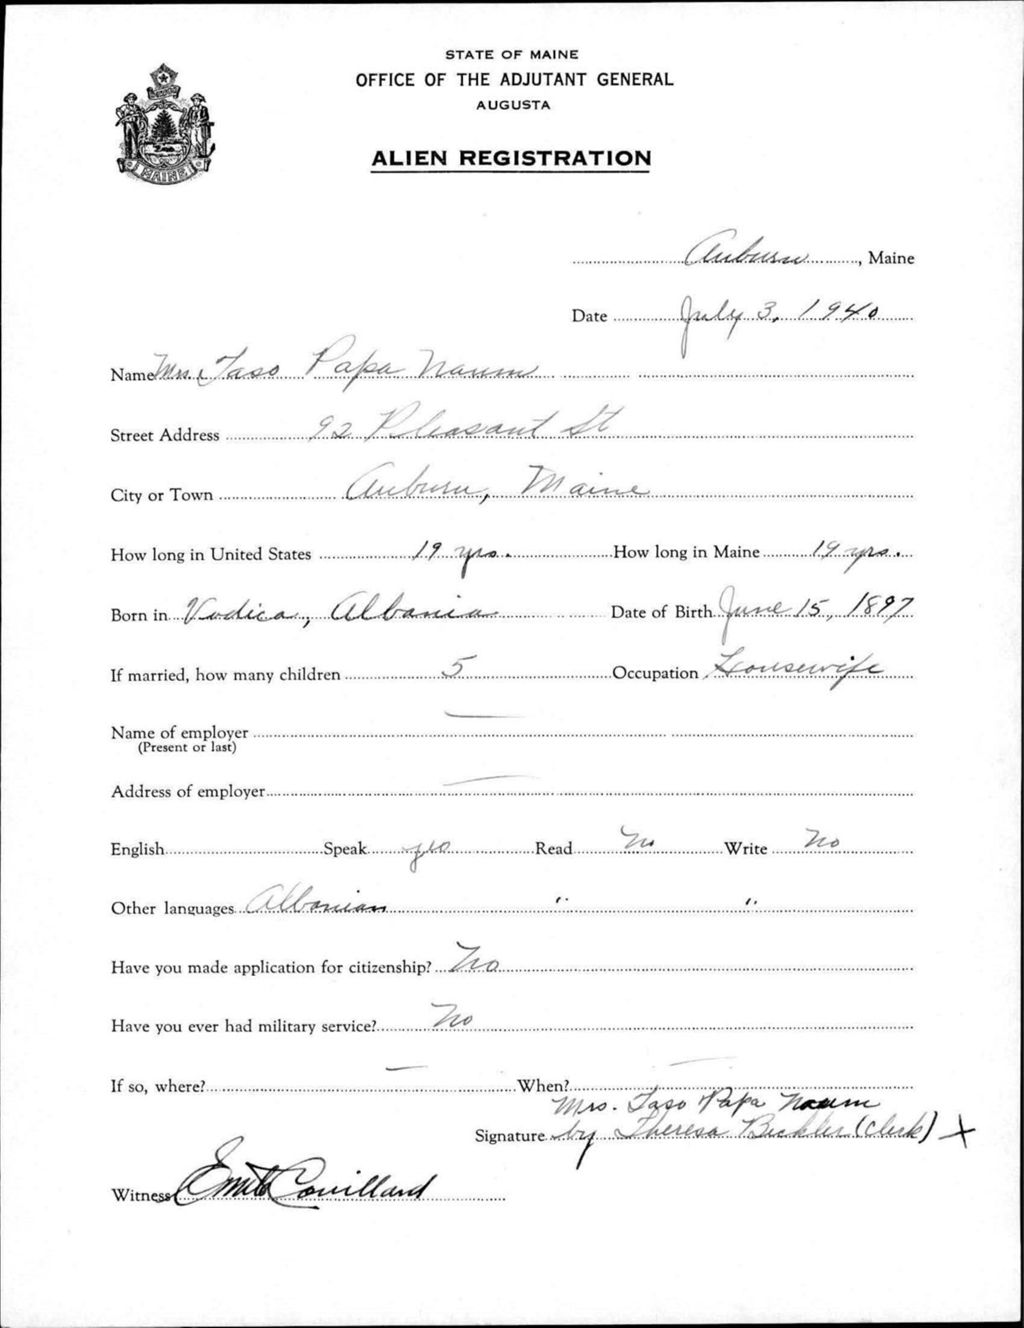 STATE OF MAINE
OFFICE OF THE ADJUTANT GENERAL
AUGUSTA
ALIEN REGISTRATION
MAINE
Auburn, Maine
Date July 3, 1940
Name Mrs. Taso Papa Naum
Street Address 92 Pleasant St
City or Town Auburn, Maine
How long in United States 19 yrs. How long in Maine 19 yrs.
Born in Vodica, Albania Date of Birth June 15, 1897
If married, how many children 5 Occupation Housewife
Name of employer —
(Present or last)
Address of employer —
English Speak yes Read No Write No
Other languages Albanian " "
Have you made application for citizenship? No
Have you ever had military service? No
If so, where? — When? —
Mrs. Taso Papa Naum
Signature by Theresa Bickler (Clerk) X
Witness Couillard